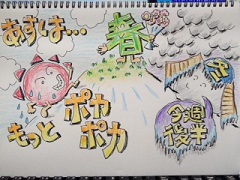 あすは…
春
もっと
ポカ
ポカ
冬
今週
後半